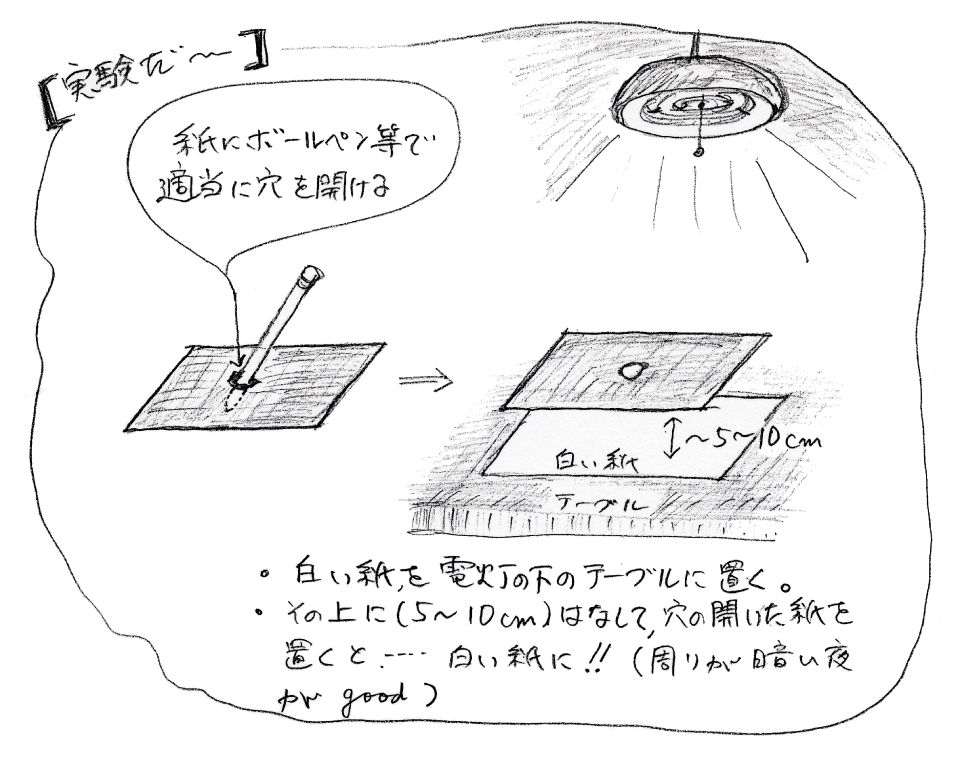 [実験だ〜]
紙にボールペン等で
適当に穴を開ける
〜5〜10cm
白い紙
テーブル
・ 白い紙を電灯の下のテーブルに置く。
・ その上に(5〜10cm)はなして、穴の開いた紙を
置くと…… 白い紙に!! (周りが暗い夜
が good)